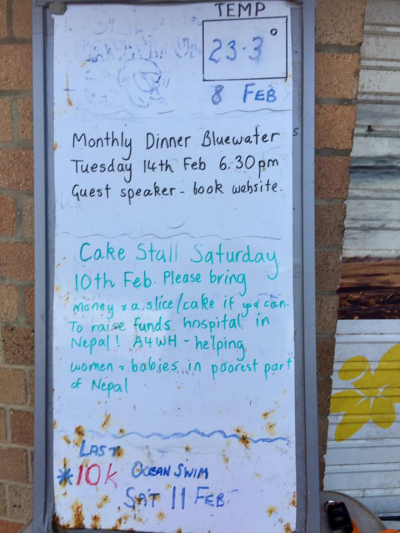 TEMP
23.3°
8 FEB
Monthly Dinner Bluewater
Tuesday 14th Feb 6.30pm
Guest speaker - book website.
Cake Stall Saturday
10th Feb. Please bring
money + a slice/cake if you can.
To raise funds hospital in
Nepal! A4WH - helping
women + babies in poorest part
of Nepal
LAST
*10K OCEAN SWIM
SAT 11 FEB